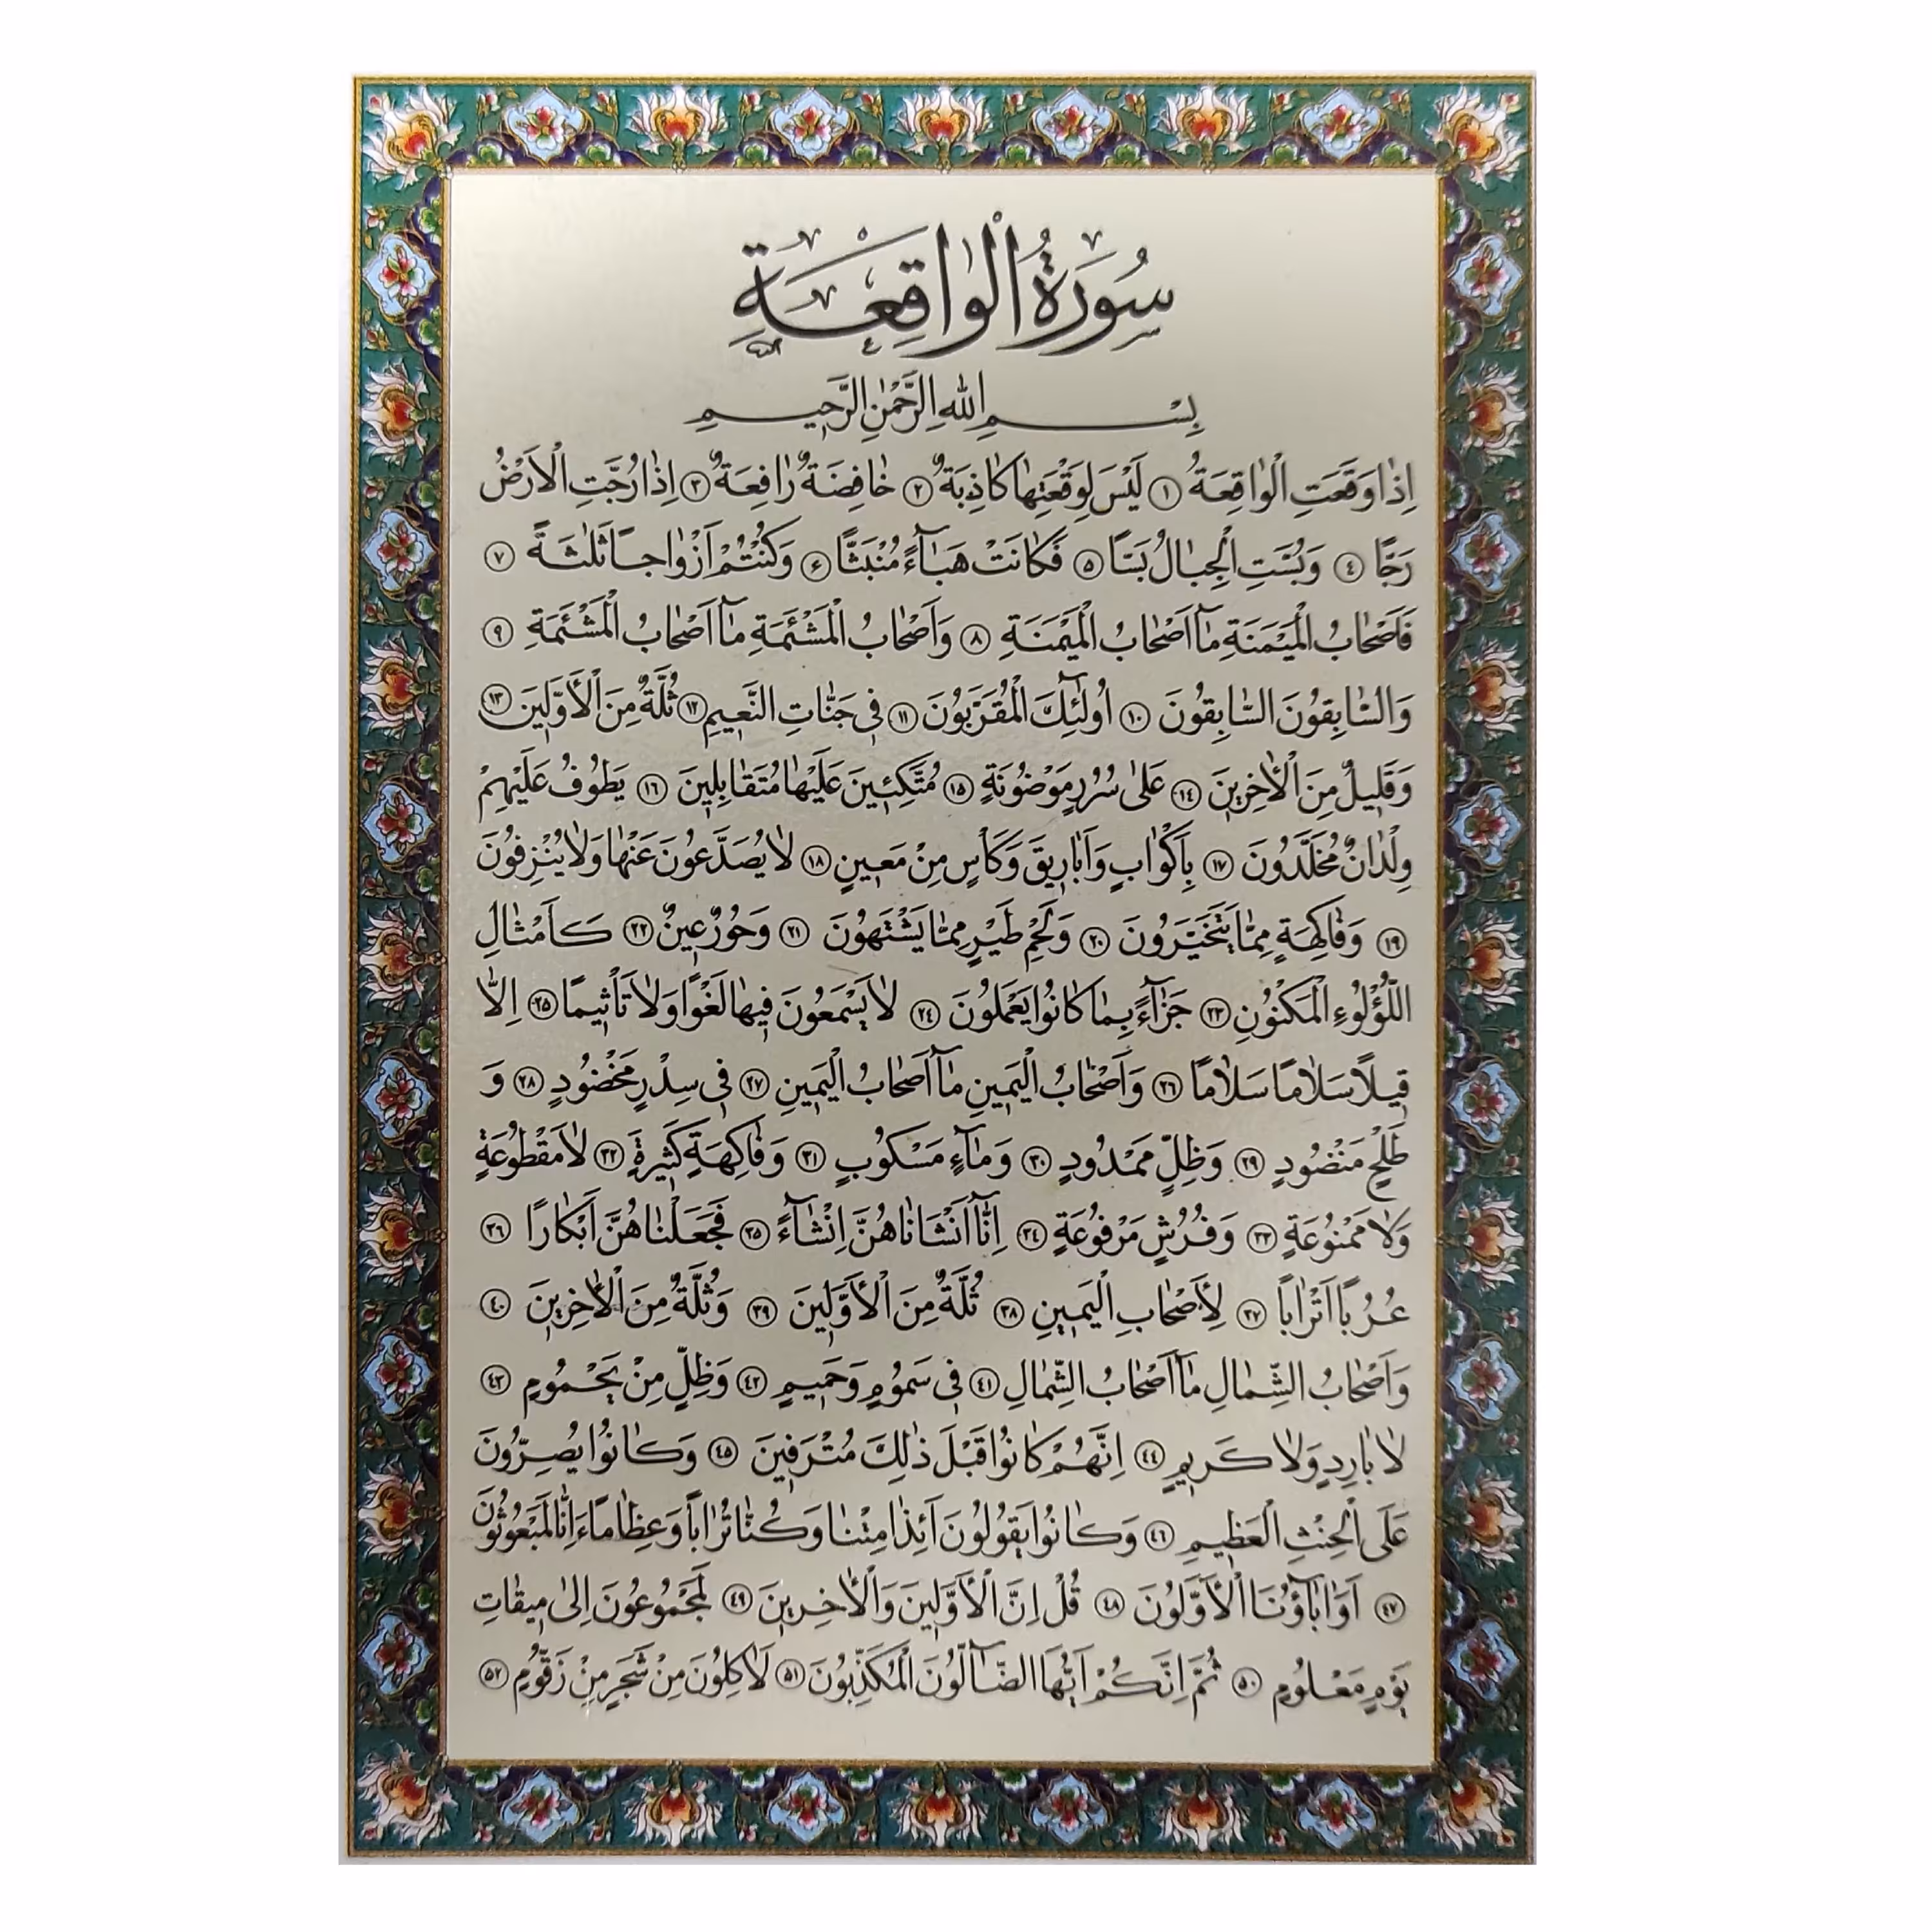 سُورَةُ الْوٰاقِعَةِ
بِسْمِ اللّٰهِ الرَّحْمٰنِ الرَّحِيمِ
اِذٰا وَقَعَتِ الْوٰاقِعَةُ ﴿١﴾ لَيْسَ لِوَقْعَتِهٰا كٰاذِبَةٌ ﴿٢﴾ خٰافِضَةٌ رٰافِعَةٌ ﴿٣﴾ اِذٰا رُجَّتِ الْاَرْضُ
رَجًّا ﴿٤﴾ وَبُسَّتِ الْجِبٰالُ بَسًّا ﴿٥﴾ فَكٰانَتْ هَبٰآءً مُنْبَثًّا ﴿۶﴾ وَكُنْتُمْ اَزْوٰاجًا ثَلٰثَةً ﴿٧﴾
فَاَصْحٰابُ الْمَيْمَنَةِ مٰآ اَصْحٰابُ الْمَيْمَنَةِ ﴿٨﴾ وَاَصْحٰابُ الْمَشْئَمَةِ مٰآ اَصْحٰابُ الْمَشْئَمَةِ ﴿٩﴾
وَالسّٰابِقُونَ السّٰابِقُونَ ﴿١٠﴾ اُولٰٓئِكَ الْمُقَرَّبُونَ ﴿١١﴾ فِي جَنّٰاتِ النَّعِيمِ ﴿١٢﴾ ثُلَّةٌ مِنَ الْأَوَّلِينَ ﴿١٣﴾
وَقَلِيلٌ مِنَ الْاٰخِرِينَ ﴿١٤﴾ عَلىٰ سُرُرٍ مَوْضُونَةٍ ﴿١٥﴾ مُتَّكِئِينَ عَلَيْهٰا مُتَقٰابِلِينَ ﴿١٦﴾ يَطُوفُ عَلَيْهِمْ
وِلْدٰانٌ مُخَلَّدُونَ ﴿١٧﴾ بِاَكْوٰابٍ وَاَبٰارِيقَ وَكَأْسٍ مِنْ مَعِينٍ ﴿١٨﴾ لٰا يُصَدَّعُونَ عَنْهٰا وَلٰا يُنْزِفُونَ
﴿١٩﴾ وَفٰاكِهَةٍ مِمّٰا يَتَخَيَّرُونَ ﴿٢٠﴾ وَلَحْمِ طَيْرٍ مِمّٰا يَشْتَهُونَ ﴿٢١﴾ وَحُورٌ عِينٌ ﴿٢٢﴾ كَاَمْثٰالِ
اللُّؤْلُوءِ الْمَكْنُونِ ﴿٢٣﴾ جَزٰآءً بِمٰا كٰانُوا يَعْمَلُونَ ﴿٢٤﴾ لٰا يَسْمَعُونَ فِيهٰا لَغْوًا وَلٰا تَأْثِيمًا ﴿٢٥﴾ اِلّٰا
قِيلًا سَلٰامًا سَلٰامًا ﴿٢٦﴾ وَاَصْحٰابُ الْيَمِينِ مٰآ اَصْحٰابُ الْيَمِينِ ﴿٢٧﴾ فِي سِدْرٍ مَخْضُودٍ ﴿٢٨﴾ وَ
طَلْحٍ مَنْضُودٍ ﴿٢٩﴾ وَظِلٍّ مَمْدُودٍ ﴿٣٠﴾ وَمٰآءٍ مَسْكُوبٍ ﴿٣١﴾ وَفٰاكِهَةٍ كَثِيرَةٍ ﴿٣٢﴾ لٰا مَقْطُوعَةٍ
وَلٰا مَمْنُوعَةٍ ﴿٣٣﴾ وَفُرُشٍ مَرْفُوعَةٍ ﴿٣٤﴾ اِنّٰآ اَنْشَاْنٰاهُنَّ اِنْشٰآءً ﴿٣٥﴾ فَجَعَلْنٰاهُنَّ اَبْكٰارًا ﴿٣٦﴾
عُرُبًا اَتْرٰابًا ﴿٣٧﴾ لِأَصْحٰابِ الْيَمِينِ ﴿٣٨﴾ ثُلَّةٌ مِنَ الْأَوَّلِينَ ﴿٣٩﴾ وَثُلَّةٌ مِنَ الْاٰخِرِينَ ﴿٤٠﴾
وَاَصْحٰابُ الشِّمٰالِ مٰآ اَصْحٰابُ الشِّمٰالِ ﴿٤١﴾ فِي سَمُومٍ وَحَمِيمٍ ﴿٤٢﴾ وَظِلٍّ مِنْ يَحْمُومٍ ﴿٤٣﴾
لٰا بٰارِدٍ وَلٰا كَرِيمٍ ﴿٤٤﴾ اِنَّهُمْ كٰانُوا قَبْلَ ذٰلِكَ مُتْرَفِينَ ﴿٤٥﴾ وَكٰانُوا يُصِرُّونَ
عَلَى الْحِنْثِ الْعَظِيمِ ﴿٤٦﴾ وَكٰانُوا يَقُولُونَ اَئِذٰا مِتْنٰا وَكُنّٰا تُرٰابًا وَعِظٰامًا ءَاِنّٰا لَمَبْعُوثُونَ
﴿٤٧﴾ اَوَاٰبٰآؤُنَا الْاَوَّلُونَ ﴿٤٨﴾ قُلْ اِنَّ الْاَوَّلِينَ وَالْاٰخِرِينَ ﴿٤٩﴾ لَمَجْمُوعُونَ اِلىٰ مِيقٰاتِ
يَوْمٍ مَعْلُومٍ ﴿٥٠﴾ ثُمَّ اِنَّكُمْ اَيُّهَا الضّٰآلُّونَ الْمُكَذِّبُونَ ﴿٥١﴾ لَاٰكِلُونَ مِنْ شَجَرٍ مِنْ زَقُّومٍ ﴿٥٢﴾